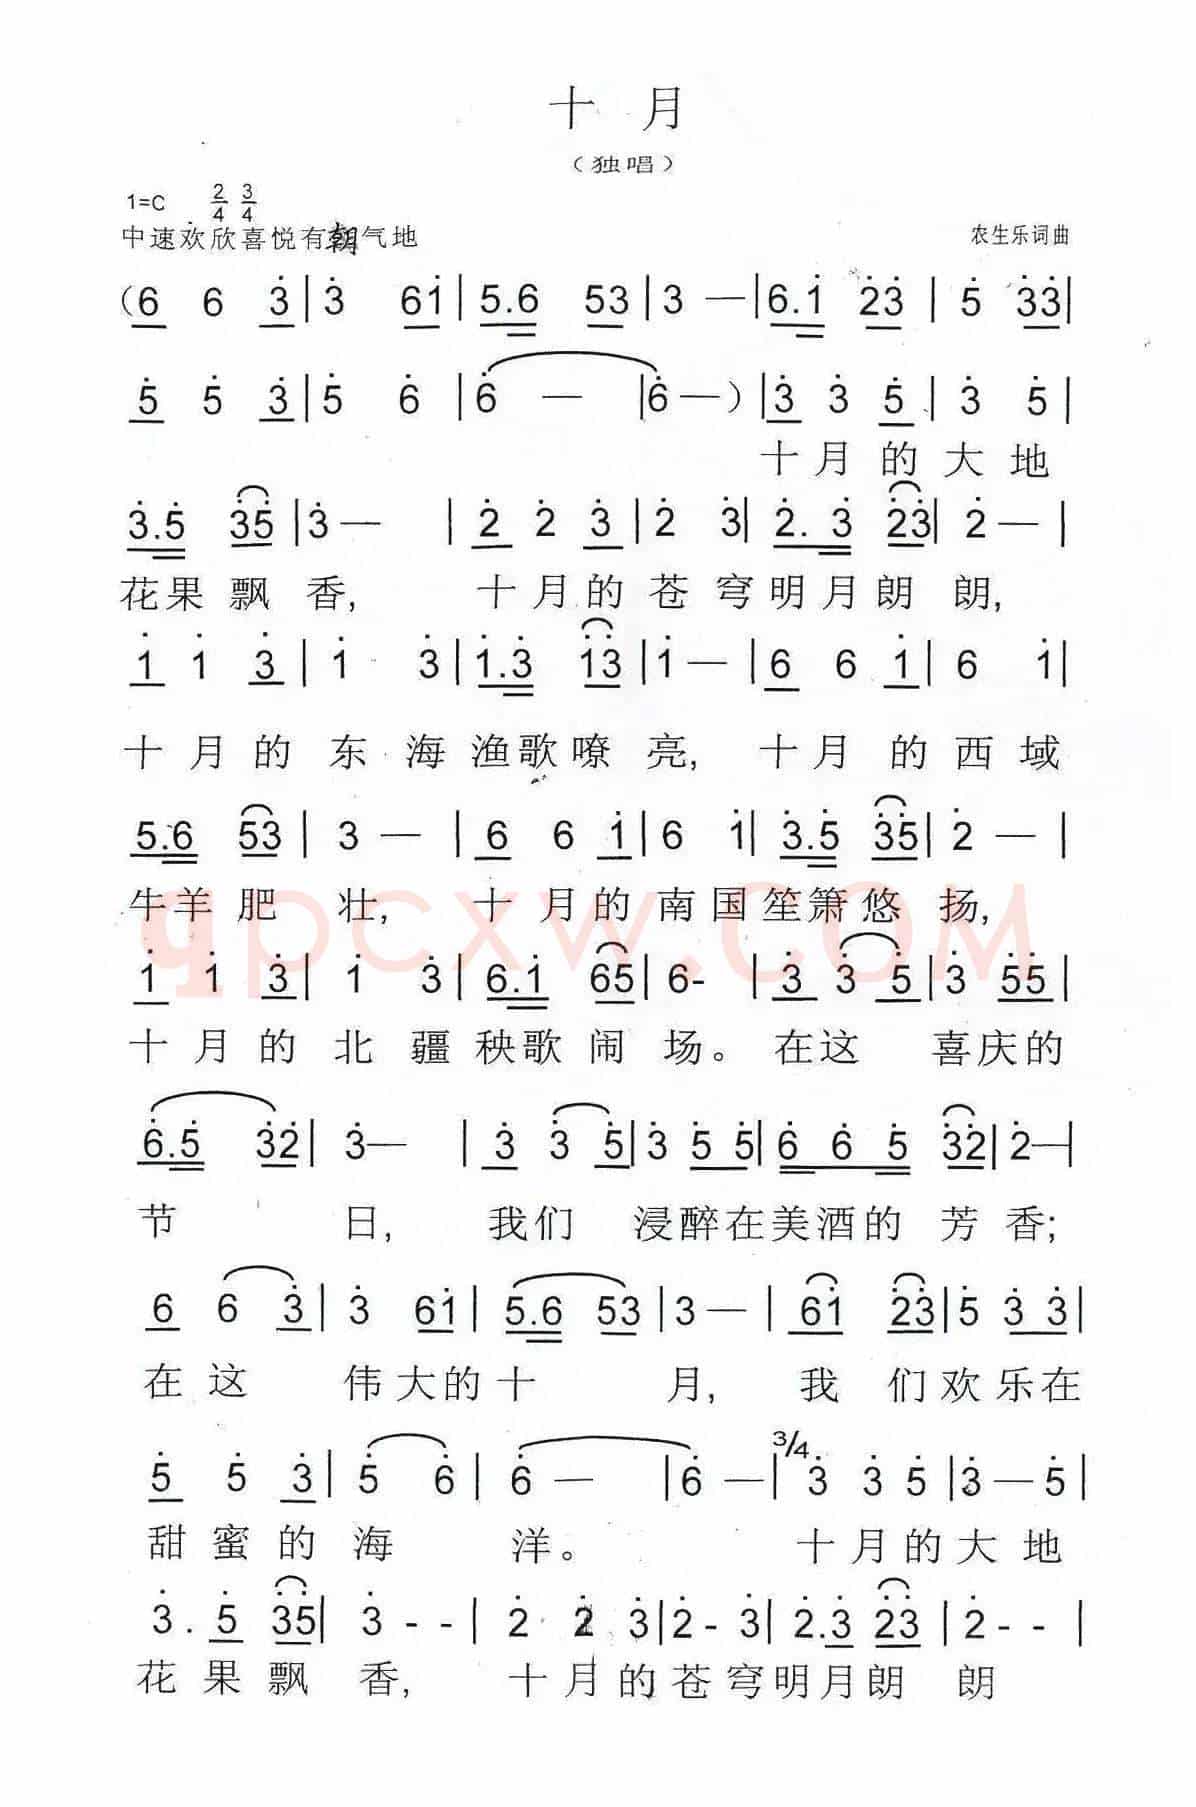 十 月
（独唱）
1=C 2/4 3/4
中速欢欣喜悦有朝气地 农生乐词曲
（6 6 3̇ | 3̇ 61̇ | 5.6 53 | 3 — | 6.1̇ 2̇3̇ | 5̇ 3̇3̇ |
5̇ 5̇ 3̇ | 5̇ 6̇ | 6̇ — | 6̇ — ） | 3̇ 3̇ 5̇ | 3̇ 5̇ |
十月的大地
3̇.5̇ 3̇5̇ | 3̇ — | 2̇ 2̇ 3̇ | 2̇ 3̇ | 2̇. 3̇ 2̇3̇ | 2̇ — |
花果飘香, 十月的苍穹明月朗朗,
1̇ 1̇ 3̇ | 1̇ 3̇ | 1̇.3̇ 1̇3̇ | 1̇ — | 6 6 1̇ | 6 1̇ |
十月的东海渔歌嘹亮, 十月的西域
5.6 53 | 3 — | 6 6 1̇ | 6 1̇ | 3̇.5̇ 3̇5̇ | 2̇ — |
牛羊肥壮, 十月的南国笙箫悠扬,
qpcxw.com
1̇ 1̇ 3̇ | 1̇ 3̇ | 6.1̇ 65 | 6- | 3̇ 3̇ 5̇ | 3̇ 5̇5̇ |
十月的北疆秧歌闹场。在这喜庆的
6̇.5̇ 3̇2̇ | 3̇ — | 3̇ 3̇ 5̇ | 3̇ 5̇ 5̇ | 6̇ 6̇ 5̇ 3̇2̇ | 2̇ — |
节日, 我们浸醉在美酒的芳香;
6 6 3̇ | 3̇ 61̇ | 5.6 53 | 3 — | 61̇ 2̇3̇ | 5̇ 3̇ 3̇ |
在这伟大的十月, 我们欢乐在
5̇ 5̇ 3̇ | 5̇ 6̇ | 6̇ — | 6̇ — | 3/4 3̇ 3̇ 5̇ | 3̇ — 5̇ |
甜蜜的海洋。 十月的大地
3̇. 5̇ 3̇5̇ | 3̇ - - | 2̇ 2̇ 3̇ | 2̇ - 3̇ | 2̇.3̇ 2̇3̇ | 2̇ - - |
花果飘香, 十月的苍穹明月朗朗